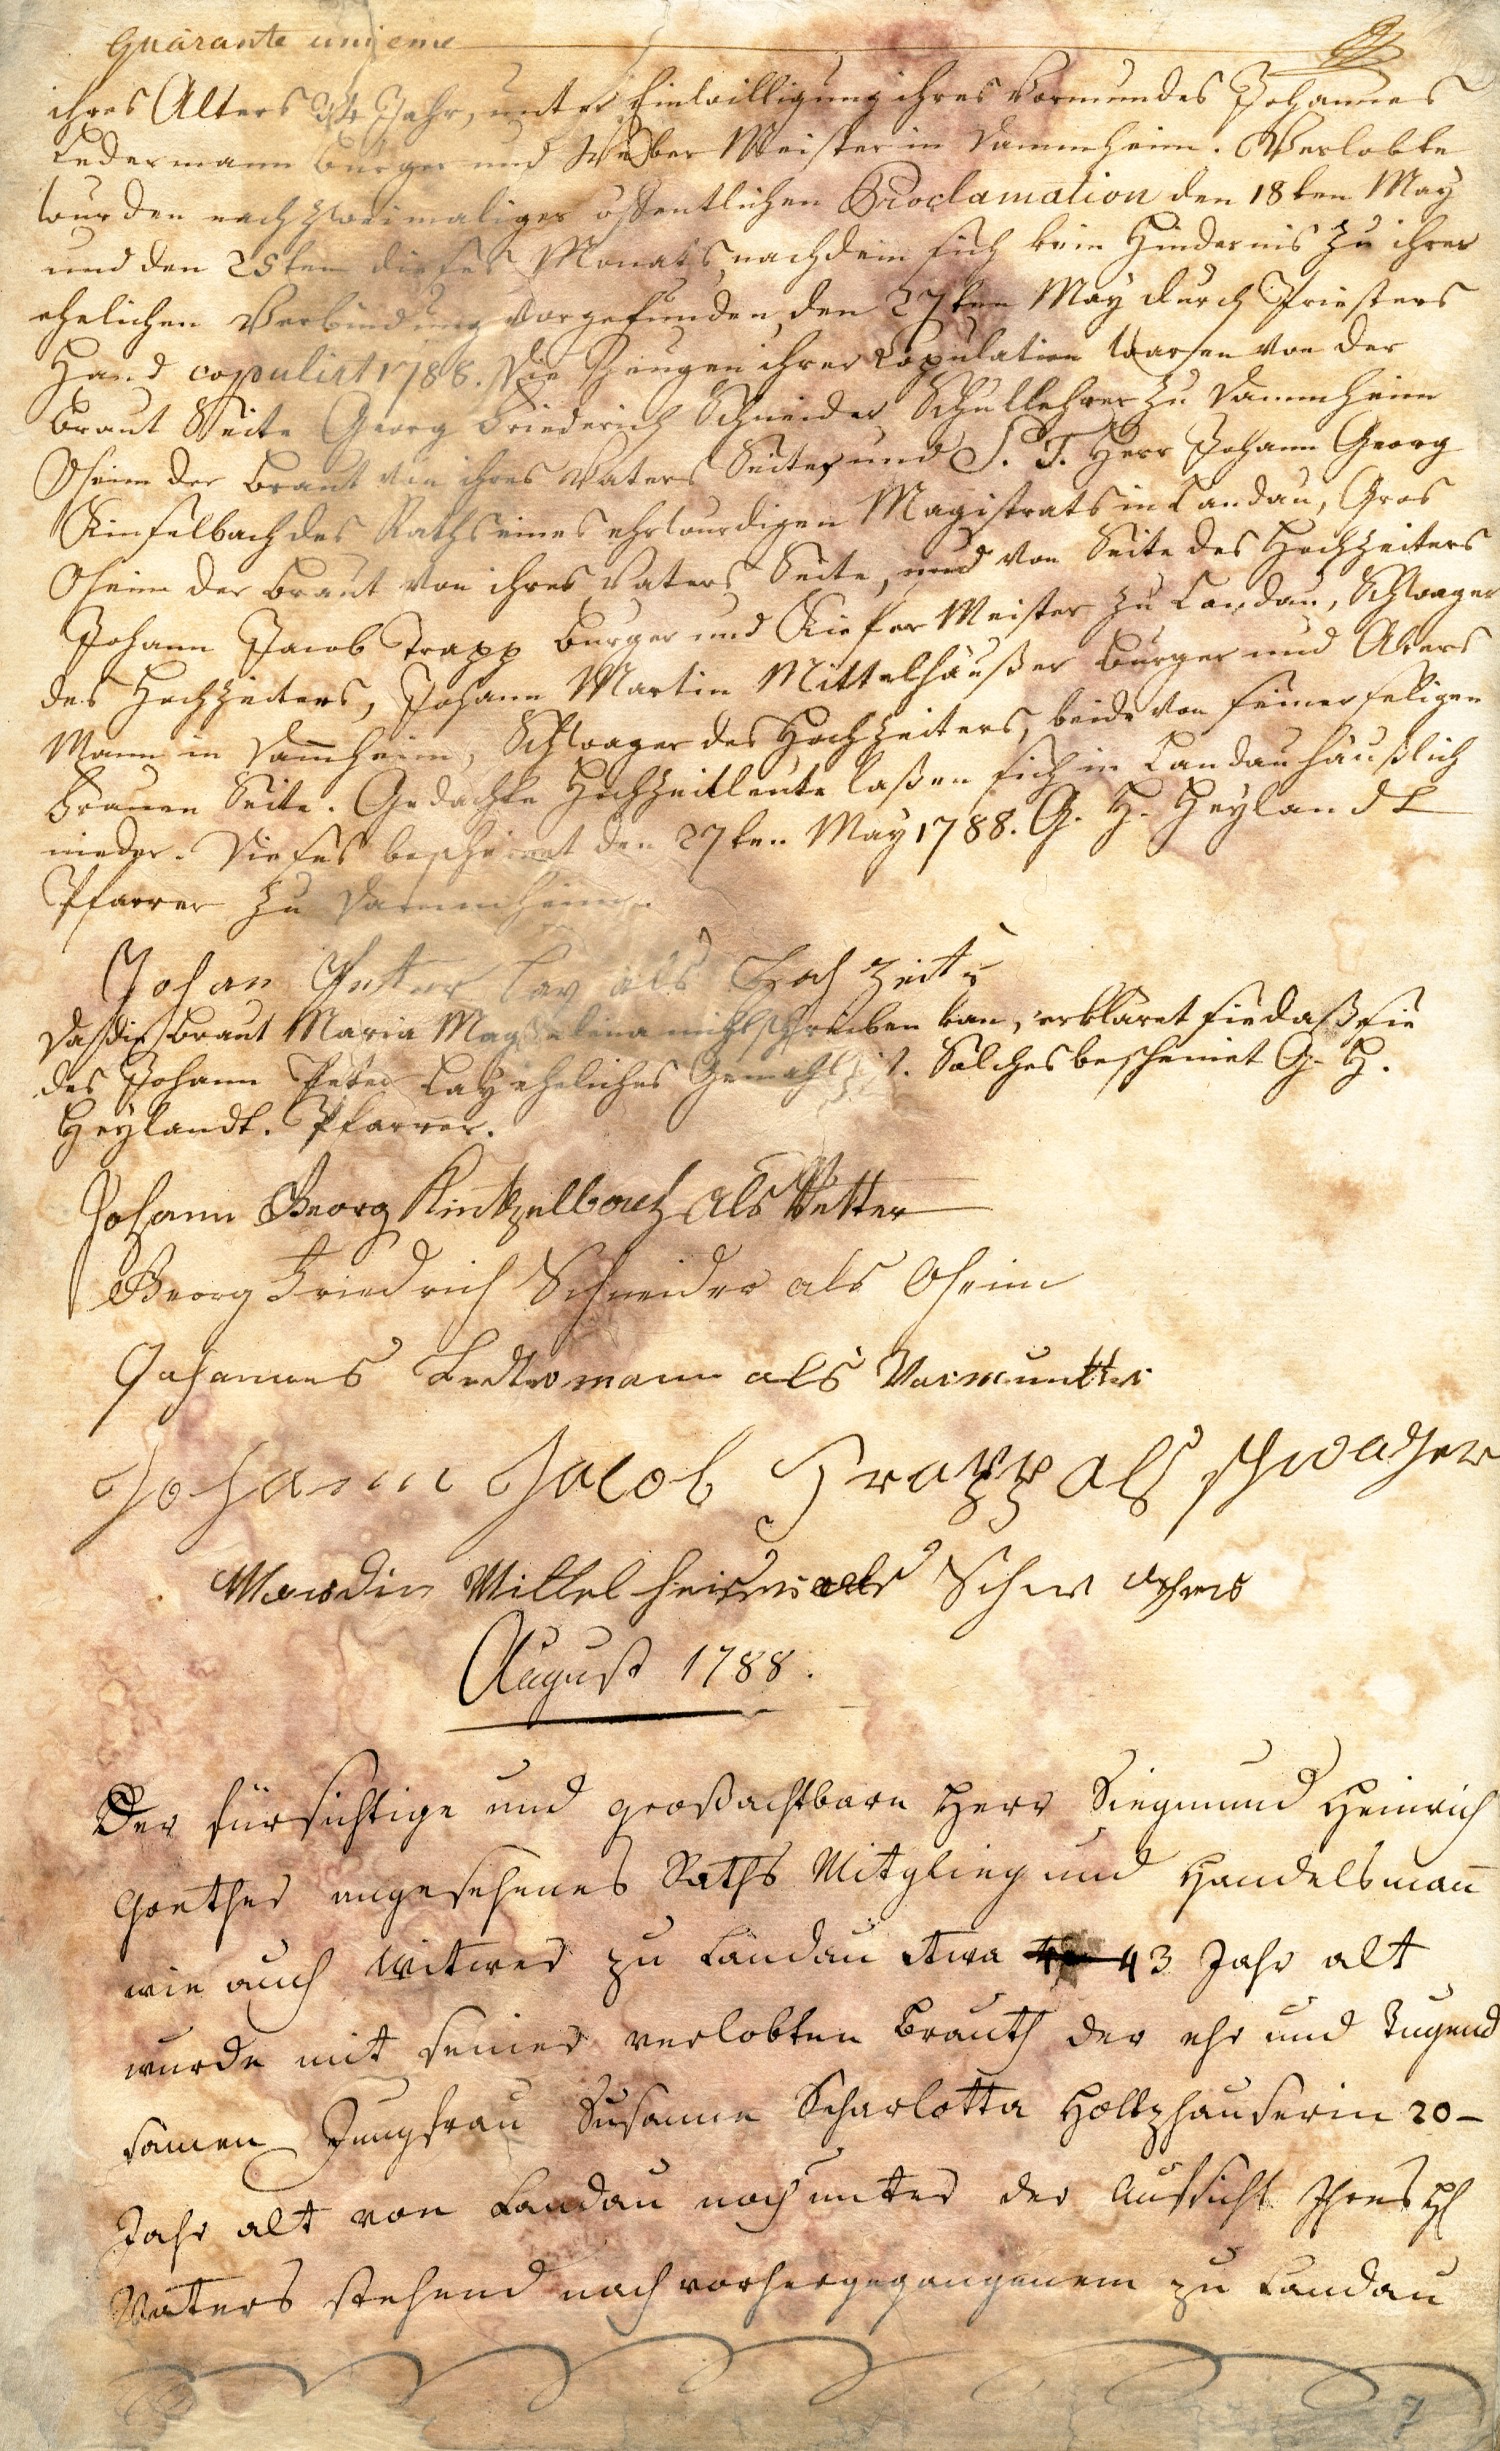 Quarante unieme
ihres Alters 34 Jahr, unter Einwilligung ihres Vormundes Johannes
Ledermann Burger und Weber Meister in Dammheim. Verlobte
wurden nach zweimaliger öffentlichen Proclamation den 18ten May
und den 25ten dieses Monats, nachdem sich kein Hindernis zu ihrer
ehelichen Verbindung vorgefunden, den 27ten May durch Priesters
Hand copulirt 1788. Die Zeugen ihrer Copulation waren von der
Braut Seite Georg Friederich Schneider Schullehrer zu Dammheim
Oheim der Braut von ihres Vaters Seite, und S. T. Herr Johann Georg
Kinselbach des Raths eines ehrwurdigen Magistrats in Landau, Gros
Oheim der Braut von ihres Vaters Seite, und von Seite des Hochzeiters
Johann Jacob Trapp Burger und Kiefer Meister zu Landau, Schwager
des Hochzeiters, Johann Martin Mittelhäußer Burger und Akers
Mann in Damheim, Schwager des Hochzeiters, beide von seiner seligen
Frauen Seite. Gedachte Hochzeitleute laßen sich in Landau häußlich
nieder. Dieses bescheinet den 27ten May 1788. G. H. Heylandt
Pfarrer zu Dammheim.
Johan Petter Lay als Hoch Zeiter
Daß die Braut Maria Magdelina nicht schreiben kan, erkläret sie daß sie
des Johann Peter Lay eheliches Gemahl ist. Solches bescheinet G. H.
Heylandt. Pfarrer.
Johann Georg Kintzelbach als Vetter
Georg Friedrich Schneider als Oheim
Johannes Ledtermann als Vormuntter
Johann Jacob Trapp als schwager
Mardin Mittelheiser als Schwager
August 1788.
Der fürsichtige und großachtbare Herr Siegmund Heinrich
Goether angesehenes Raths Mitglieg und Handelsmann̅
wie auch Witwer zu Landau etwa 43 Jahr alt
wurde mit seiner verlobten Brauth der ehr und Tugend
samen Jungfrau Susanna Scharlotta Holtzhauserin 20-
Jahr alt von Landau noch unter der Aufsicht Ihres H
Vaters stehend nach vorhergegangenem zu Landau
7